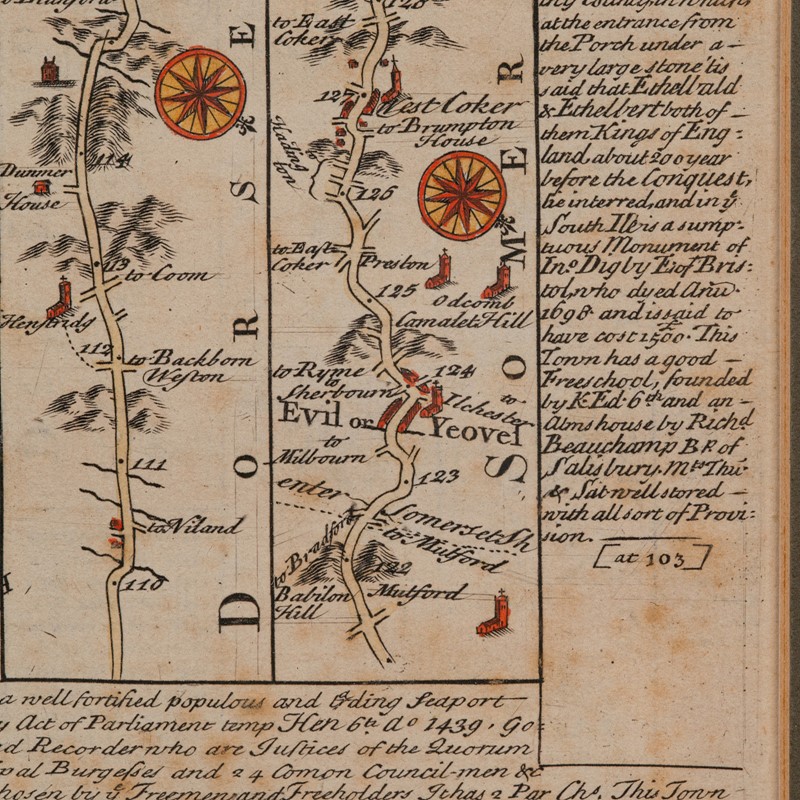 114
Dunmer
House
113
to Coom
Henstridg
112
to Backborn
Weston
111
to Niland
110
DORSE
to East
Coker
127
West Coker
to Brumpton
House
126
to East
Coker
Preston
Odcomb
125
Camalet Hill
to Ryme
to
Sherbourn
124
to
Ilchester
Evil or Yeovel
to
Milbourn
123
enter
Somerset Sh
to Mutford
to Bradford
122
Babilon
Hill
Mutford
SOMER
at the entrance from
the Porch under a —
very large stone 'tis
said that Ethelbald
& Ethelbert both of —
them Kings of Eng:
land, about 200 year
before the Conquest,
lie interred, and in ye
South Ile is a sump:
tuous Monument of
Ino. Digby E. of Bris:
tol, who dyed Anno.
1698. and is said to
have cost 1500£. This
Town has a good —
Freeschool, founded
by K. Ed. 6th and an —
Alms house by Richd
Beauchamp Bp. of
Salisbury. Mts Thu.
& Sat. well stored —
with all sort of Provi:
sion.
[at 103]
a well fortified populous and trding seaport
Act of Parliament temp Hen 6th Ao 1439. Go:
d Recorder who are Justices of the Quorum
pal Burgesses and 24 Comon Council-men &c
hosen by ye Freemen and Freeholders It has 2 Par Chs. This Town